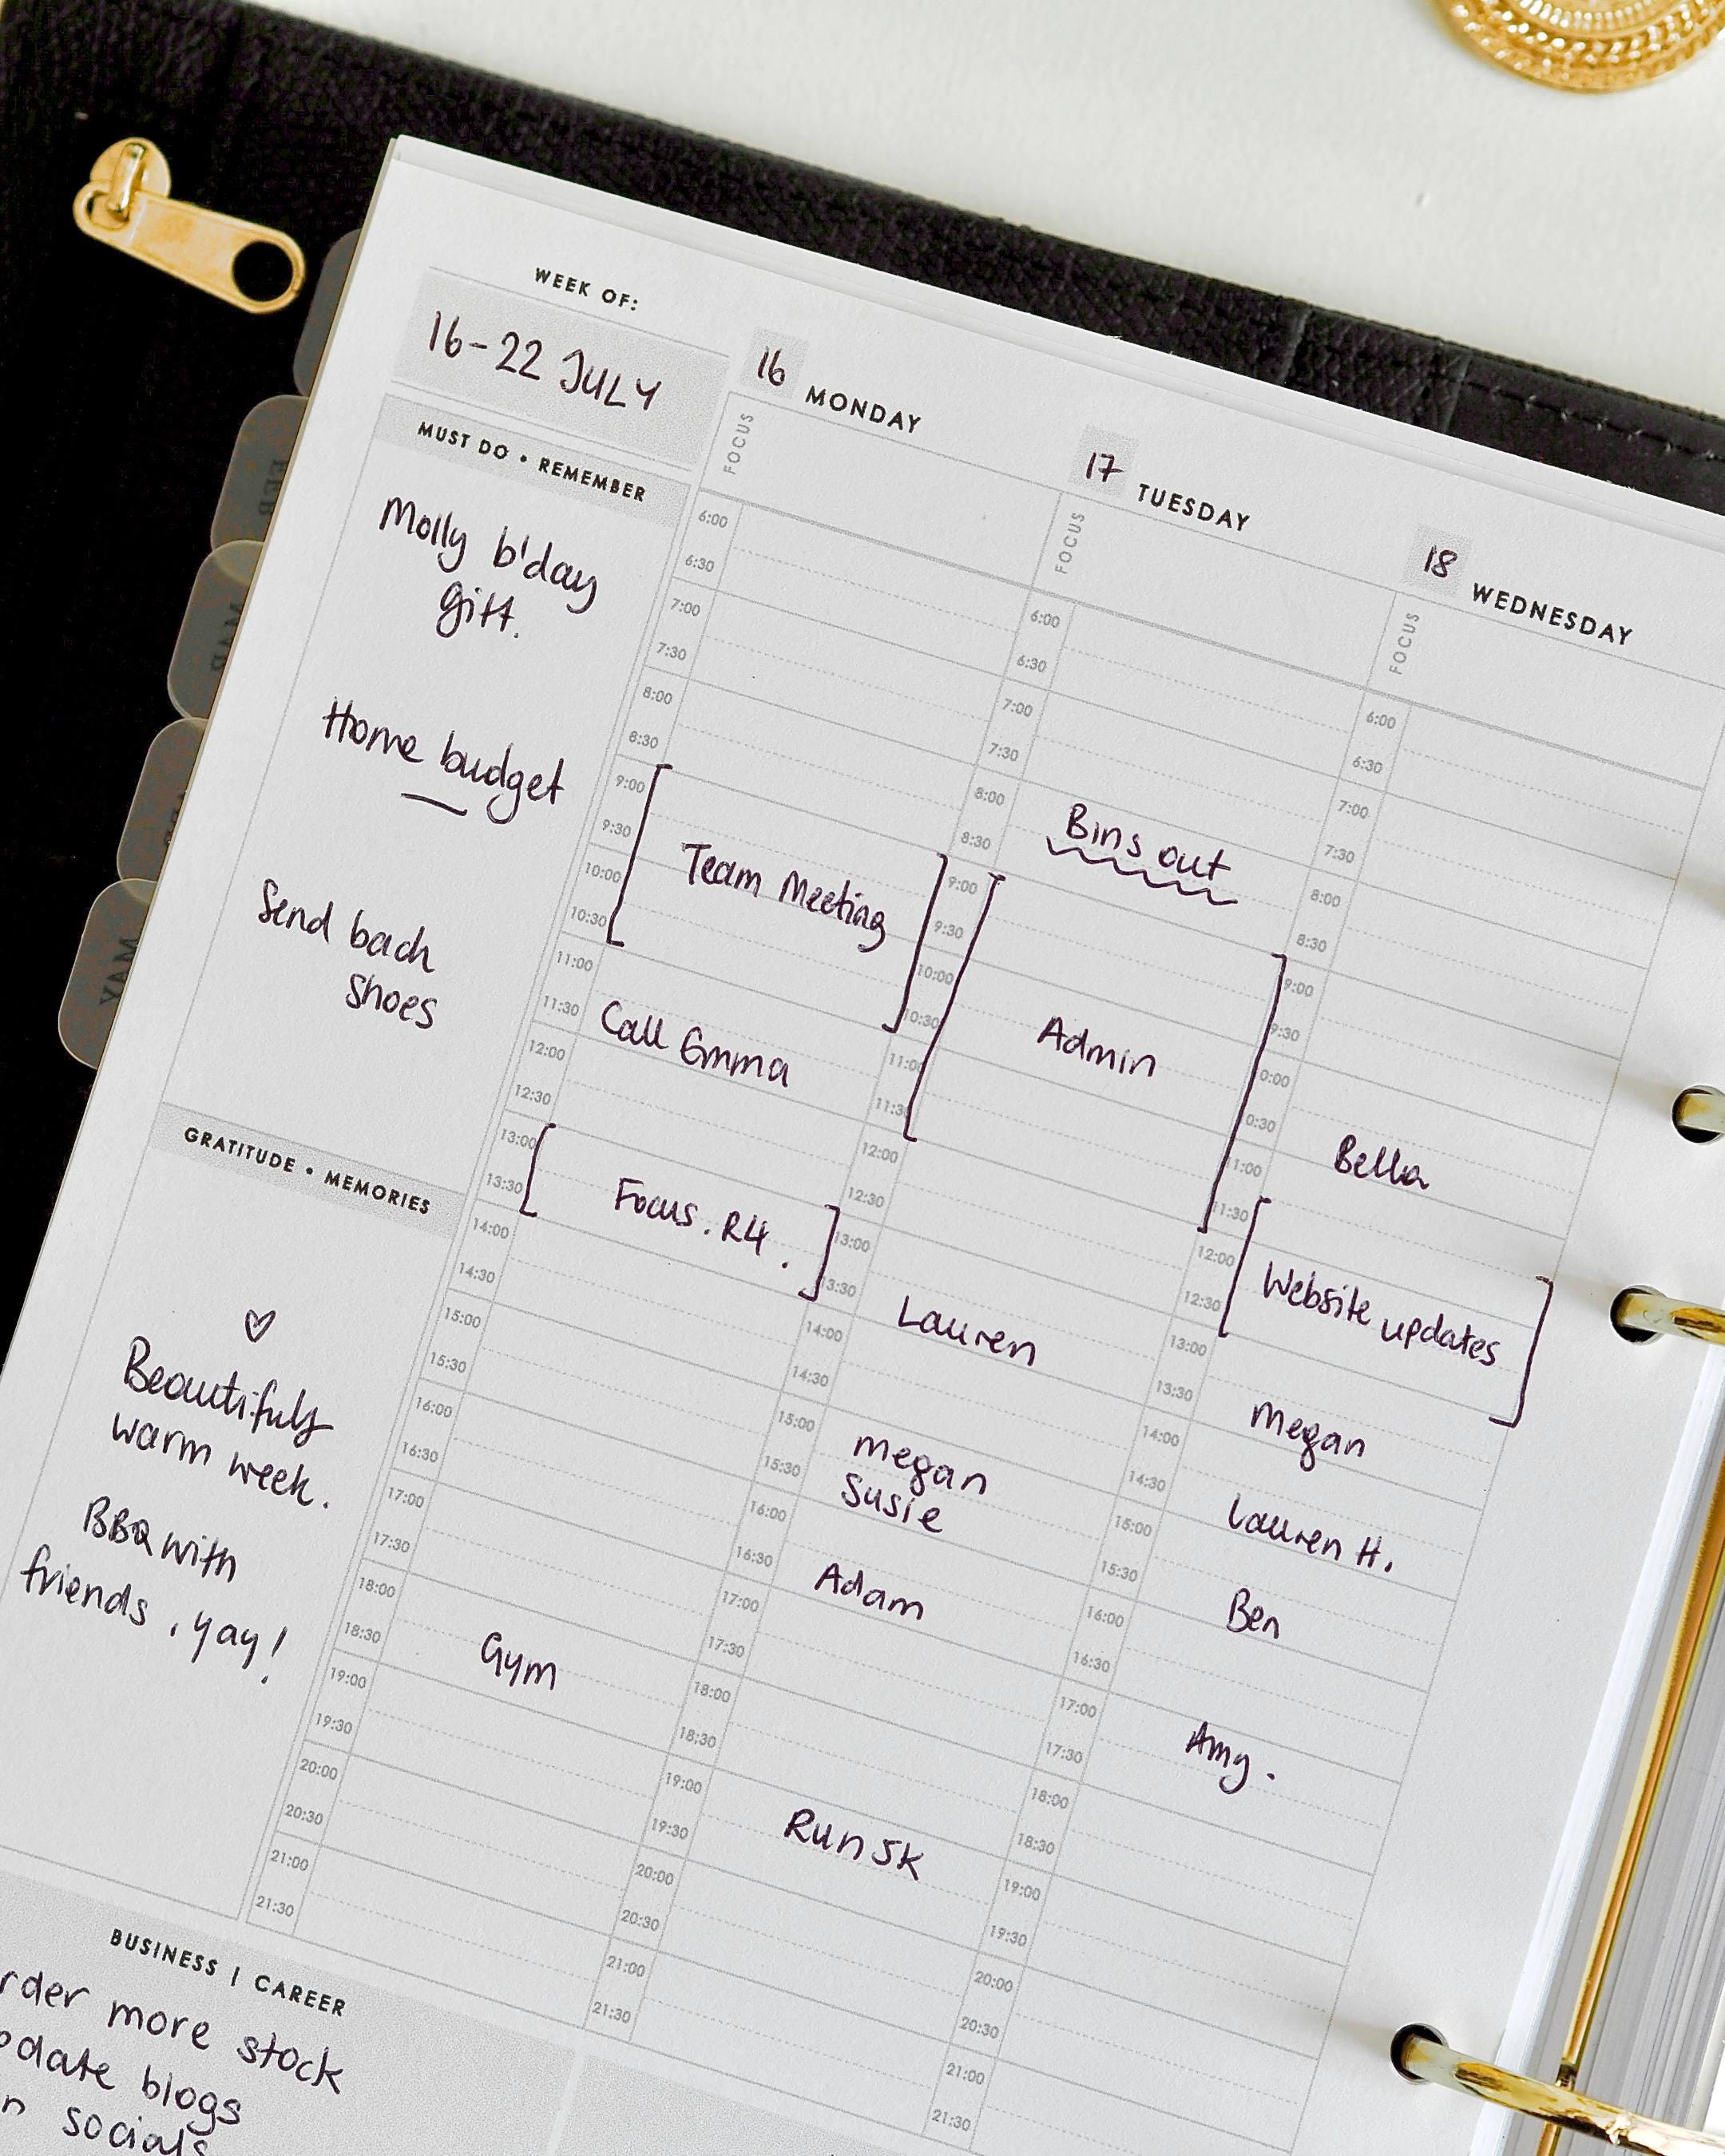 WEEK OF:
16-22 JULY
MUST DO • REMEMBER
Molly b'day
gift.
Home budget
Send back
shoes
GRATITUDE • MEMORIES
♡
Beautifuly
warm week.
BBQ with
friends, yay!
16 MONDAY
FOCUS
6:00
6:30
7:00
7:30
8:00
8:30
9:00
9:30
Team Meeting
10:00
10:30
11:00
11:30
Call Emma
12:00
12:30
13:00
13:30
Focus. R4.
14:00
14:30
15:00
15:30
16:00
16:30
17:00
17:30
18:00
18:30
Gym
19:00
19:30
20:00
20:30
21:00
21:30
17 TUESDAY
FOCUS
6:00
6:30
7:00
7:30
8:00
Bins out
8:30
9:00
9:30
10:00
Admin
10:30
11:00
11:30
12:00
12:30
13:00
13:30
Lauren
14:00
14:30
15:00
megan
15:30
Susie
16:00
16:30
Adam
17:00
17:30
18:00
18:30
19:00
19:30
Run 5K
20:00
20:30
21:00
21:30
18 WEDNESDAY
FOCUS
6:00
6:30
7:00
7:30
8:00
8:30
9:00
9:30
0:00
0:30
Bella
11:00
11:30
12:00
Website updates
12:30
13:00
13:30
Megan
14:00
14:30
Lauren H.
15:00
15:30
Ben
16:00
16:30
17:00
Amy.
17:30
18:00
18:30
19:00
19:30
20:00
20:30
21:00
21:30
BUSINESS | CAREER
rder more stock
pdate blogs
n socials
FEB
MAR
MAY